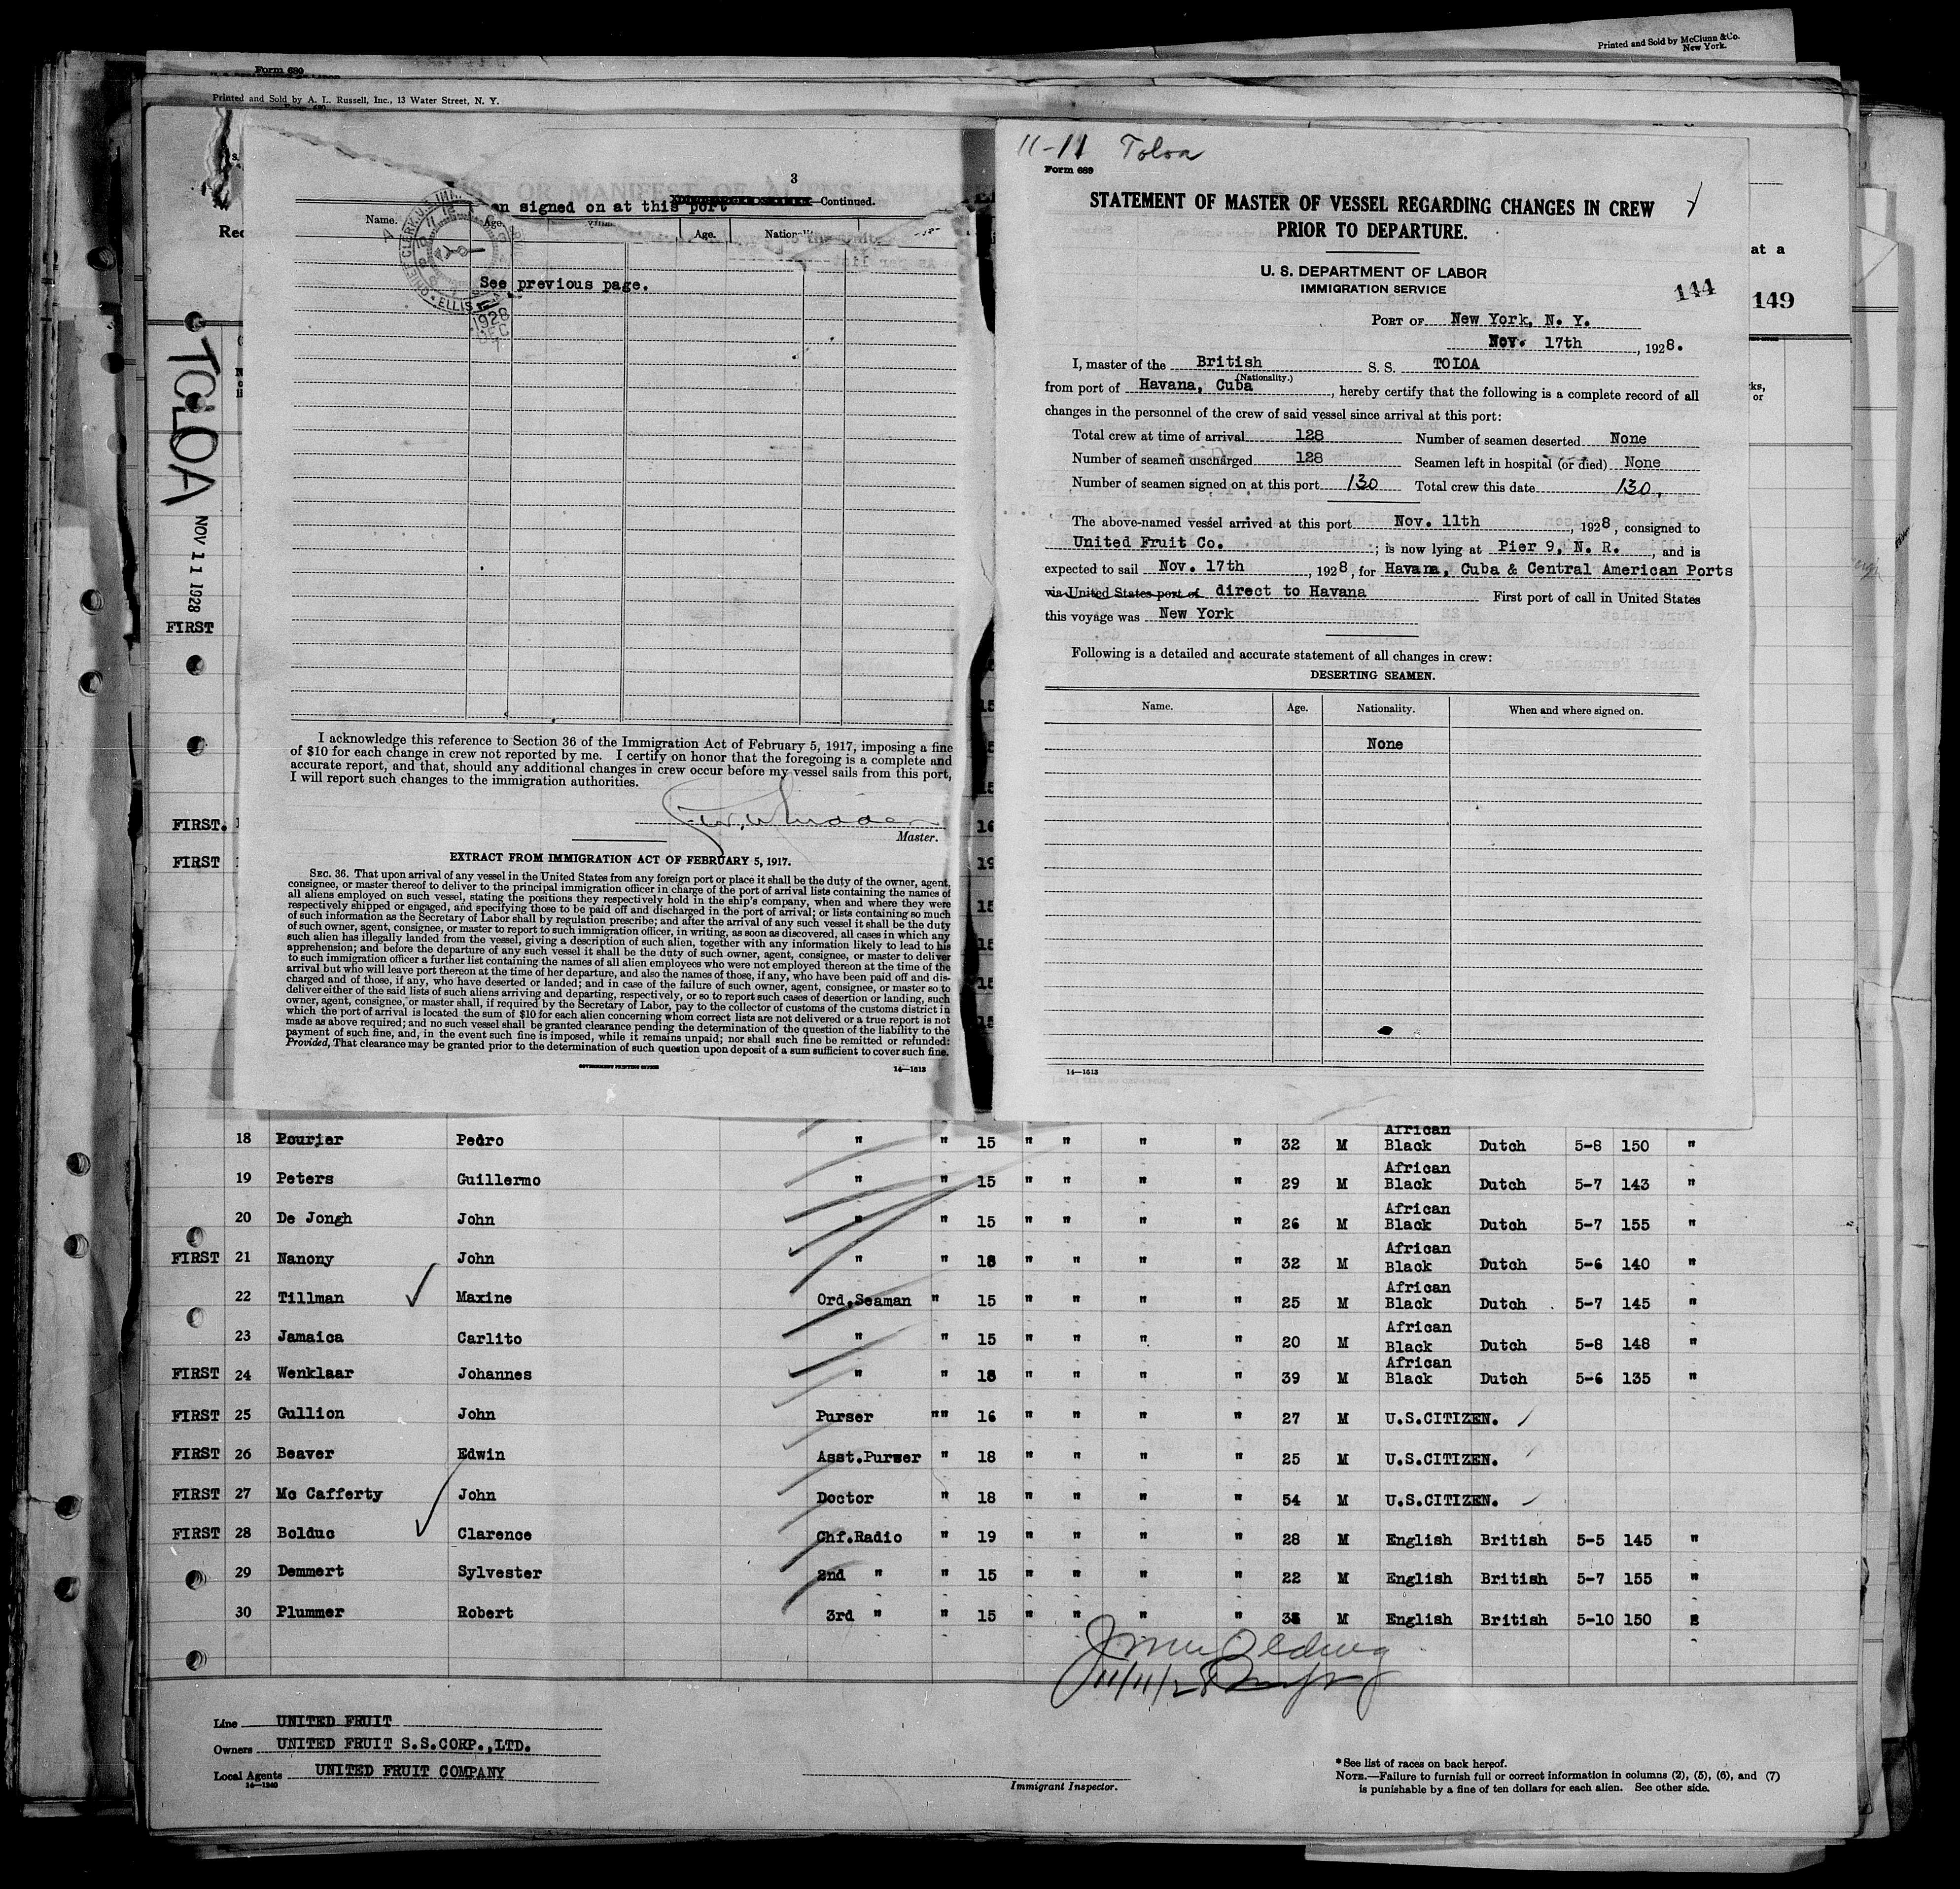 Printed and Sold by McClunn & Co.
New York.
Form 680
Printed and Sold by A. L. Russell, Inc., 13 Water Street, N. Y.
TOLOA
NOV 11 1928
3
en signed on at this port —Continued.
Name. Age. Age.
See previous page.
ELLIS
1928
DEC
I acknowledge this reference to Section 36 of the Immigration Act of February 5, 1917, imposing a fine
of $10 for each change in crew not reported by me. I certify on honor that the foregoing is a complete and
accurate report, and that, should any additional changes in crew occur before my vessel sails from this port,
I will report such changes to the immigration authorities.
Master.
EXTRACT FROM IMMIGRATION ACT OF FEBRUARY 5, 1917.
SEC. 36. That upon arrival of any vessel in the United States from any foreign port or place it shall be the duty of the owner, agent,
consignee, or master thereof to deliver to the principal immigration officer in charge of the port of arrival lists containing the names of
all aliens employed on such vessel, stating the positions they respectively hold in the ship's company, when and where they were
respectively shipped or engaged, and specifying those to be paid off and discharged in the port of arrival; or lists containing so much
of such information as the Secretary of Labor shall by regulation prescribe; and after the arrival of any such vessel it shall be the duty
of such owner, agent, consignee, or master to report to such immigration officer, in writing, as soon as discovered, all cases in which any
such alien has illegally landed from the vessel, giving a description of such alien, together with any information likely to lead to his
apprehension; and before the departure of any such vessel it shall be the duty of such owner, agent, consignee, or master to deliver
to such immigration officer a further list containing the names of all alien employees who were not employed thereon at the time of the
arrival but who will leave port thereon at the time of her departure, and also the names of those, if any, who have been paid off and dis-
charged and of those, if any, who have deserted or landed; and in case of the failure of such owner, agent, consignee, or master so to
deliver either of the said lists of such aliens arriving and departing, respectively, or so to report such cases of desertion or landing, such
owner, agent, consignee, or master shall, if required by the Secretary of Labor, pay to the collector of customs of the customs district in
which the port of arrival is located the sum of $10 for each alien concerning whom correct lists are not delivered or a true report is not
made as above required; and no such vessel shall be granted clearance pending the determination of the question of the liability to the
payment of such fine, and, in the event such fine is imposed, while it remains unpaid; nor shall such fine be remitted or refunded:
Provided, That clearance may be granted prior to the determination of such question upon deposit of a sum sufficient to cover such fine.
GOVERNMENT PRINTING OFFICE 14—1613
11-11 Toloa
Form 689
STATEMENT OF MASTER OF VESSEL REGARDING CHANGES IN CREW
PRIOR TO DEPARTURE.
U. S. DEPARTMENT OF LABOR
IMMIGRATION SERVICE
144
149
at a
PORT OF New York, N. Y.
Nov. 17th, 1928.
I, master of the British S. S. TOLOA
(Nationality.)
from port of Havana, Cuba, hereby certify that the following is a complete record of all
changes in the personnel of the crew of said vessel since arrival at this port:
Total crew at time of arrival 128 Number of seamen deserted None
Number of seamen discharged 128 Seamen left in hospital (or died) None
Number of seamen signed on at this port 130 Total crew this date 130.
The above-named vessel arrived at this port Nov. 11th, 1928, consigned to
United Fruit Co.; is now lying at Pier 9, N. R., and is
expected to sail Nov. 17th, 1928, for Havana, Cuba & Central American Ports
via United States port of direct to Havana First port of call in United States
this voyage was New York
Following is a detailed and accurate statement of all changes in crew:
DESERTING SEAMEN.
Name. Age. Nationality. When and where signed on.
None
14—1613
FIRST
FIRST.
FIRST
18 Pourier Pedro " " 15 " " " " 32 M African Black Dutch 5-8 150 "
19 Peters Guillermo " " 15 " " " " 29 M African Black Dutch 5-7 143 "
20 De Jongh John " " 15 " " " " 26 M African Black Dutch 5-7 155 "
FIRST 21 Nanony John " " 18 " " " " 32 M African Black Dutch 5-6 140 "
22 Tillman Maxine Ord.Seaman " 15 " " " " 25 M African Black Dutch 5-7 145 "
23 Jamaica Carlito " " 15 " " " " 20 M African Black Dutch 5-8 148 "
FIRST 24 Wenklaar Johannes " " 18 " " " " 39 M African Black Dutch 5-6 135 "
FIRST 25 Gullion John Purser "" 16 " " " " 27 M U.S.CITIZEN.
FIRST 26 Beaver Edwin Asst.Purser " 18 " " " " 25 M U.S.CITIZEN.
FIRST 27 Mc Cafferty John Doctor " 18 " " " " 54 M U.S.CITIZEN.
FIRST 28 Bolduc Clarence Chf.Radio " 19 " " " " 28 M English British 5-5 145 "
29 Demmert Sylvester 2nd " " 15 " " " " 22 M English British 5-7 155 "
30 Plummer Robert 3rd " " 15 " " " " M English British 5-10 150
11/11/28
Line UNITED FRUIT
Owners UNITED FRUIT S.S.CORP.,LTD.
Local Agents UNITED FRUIT COMPANY
14—1240
Immigrant Inspector.
*See list of races on back hereof.
NOTE.—Failure to furnish full or correct information in columns (2), (5), (6), and (7)
is punishable by a fine of ten dollars for each alien. See other side.